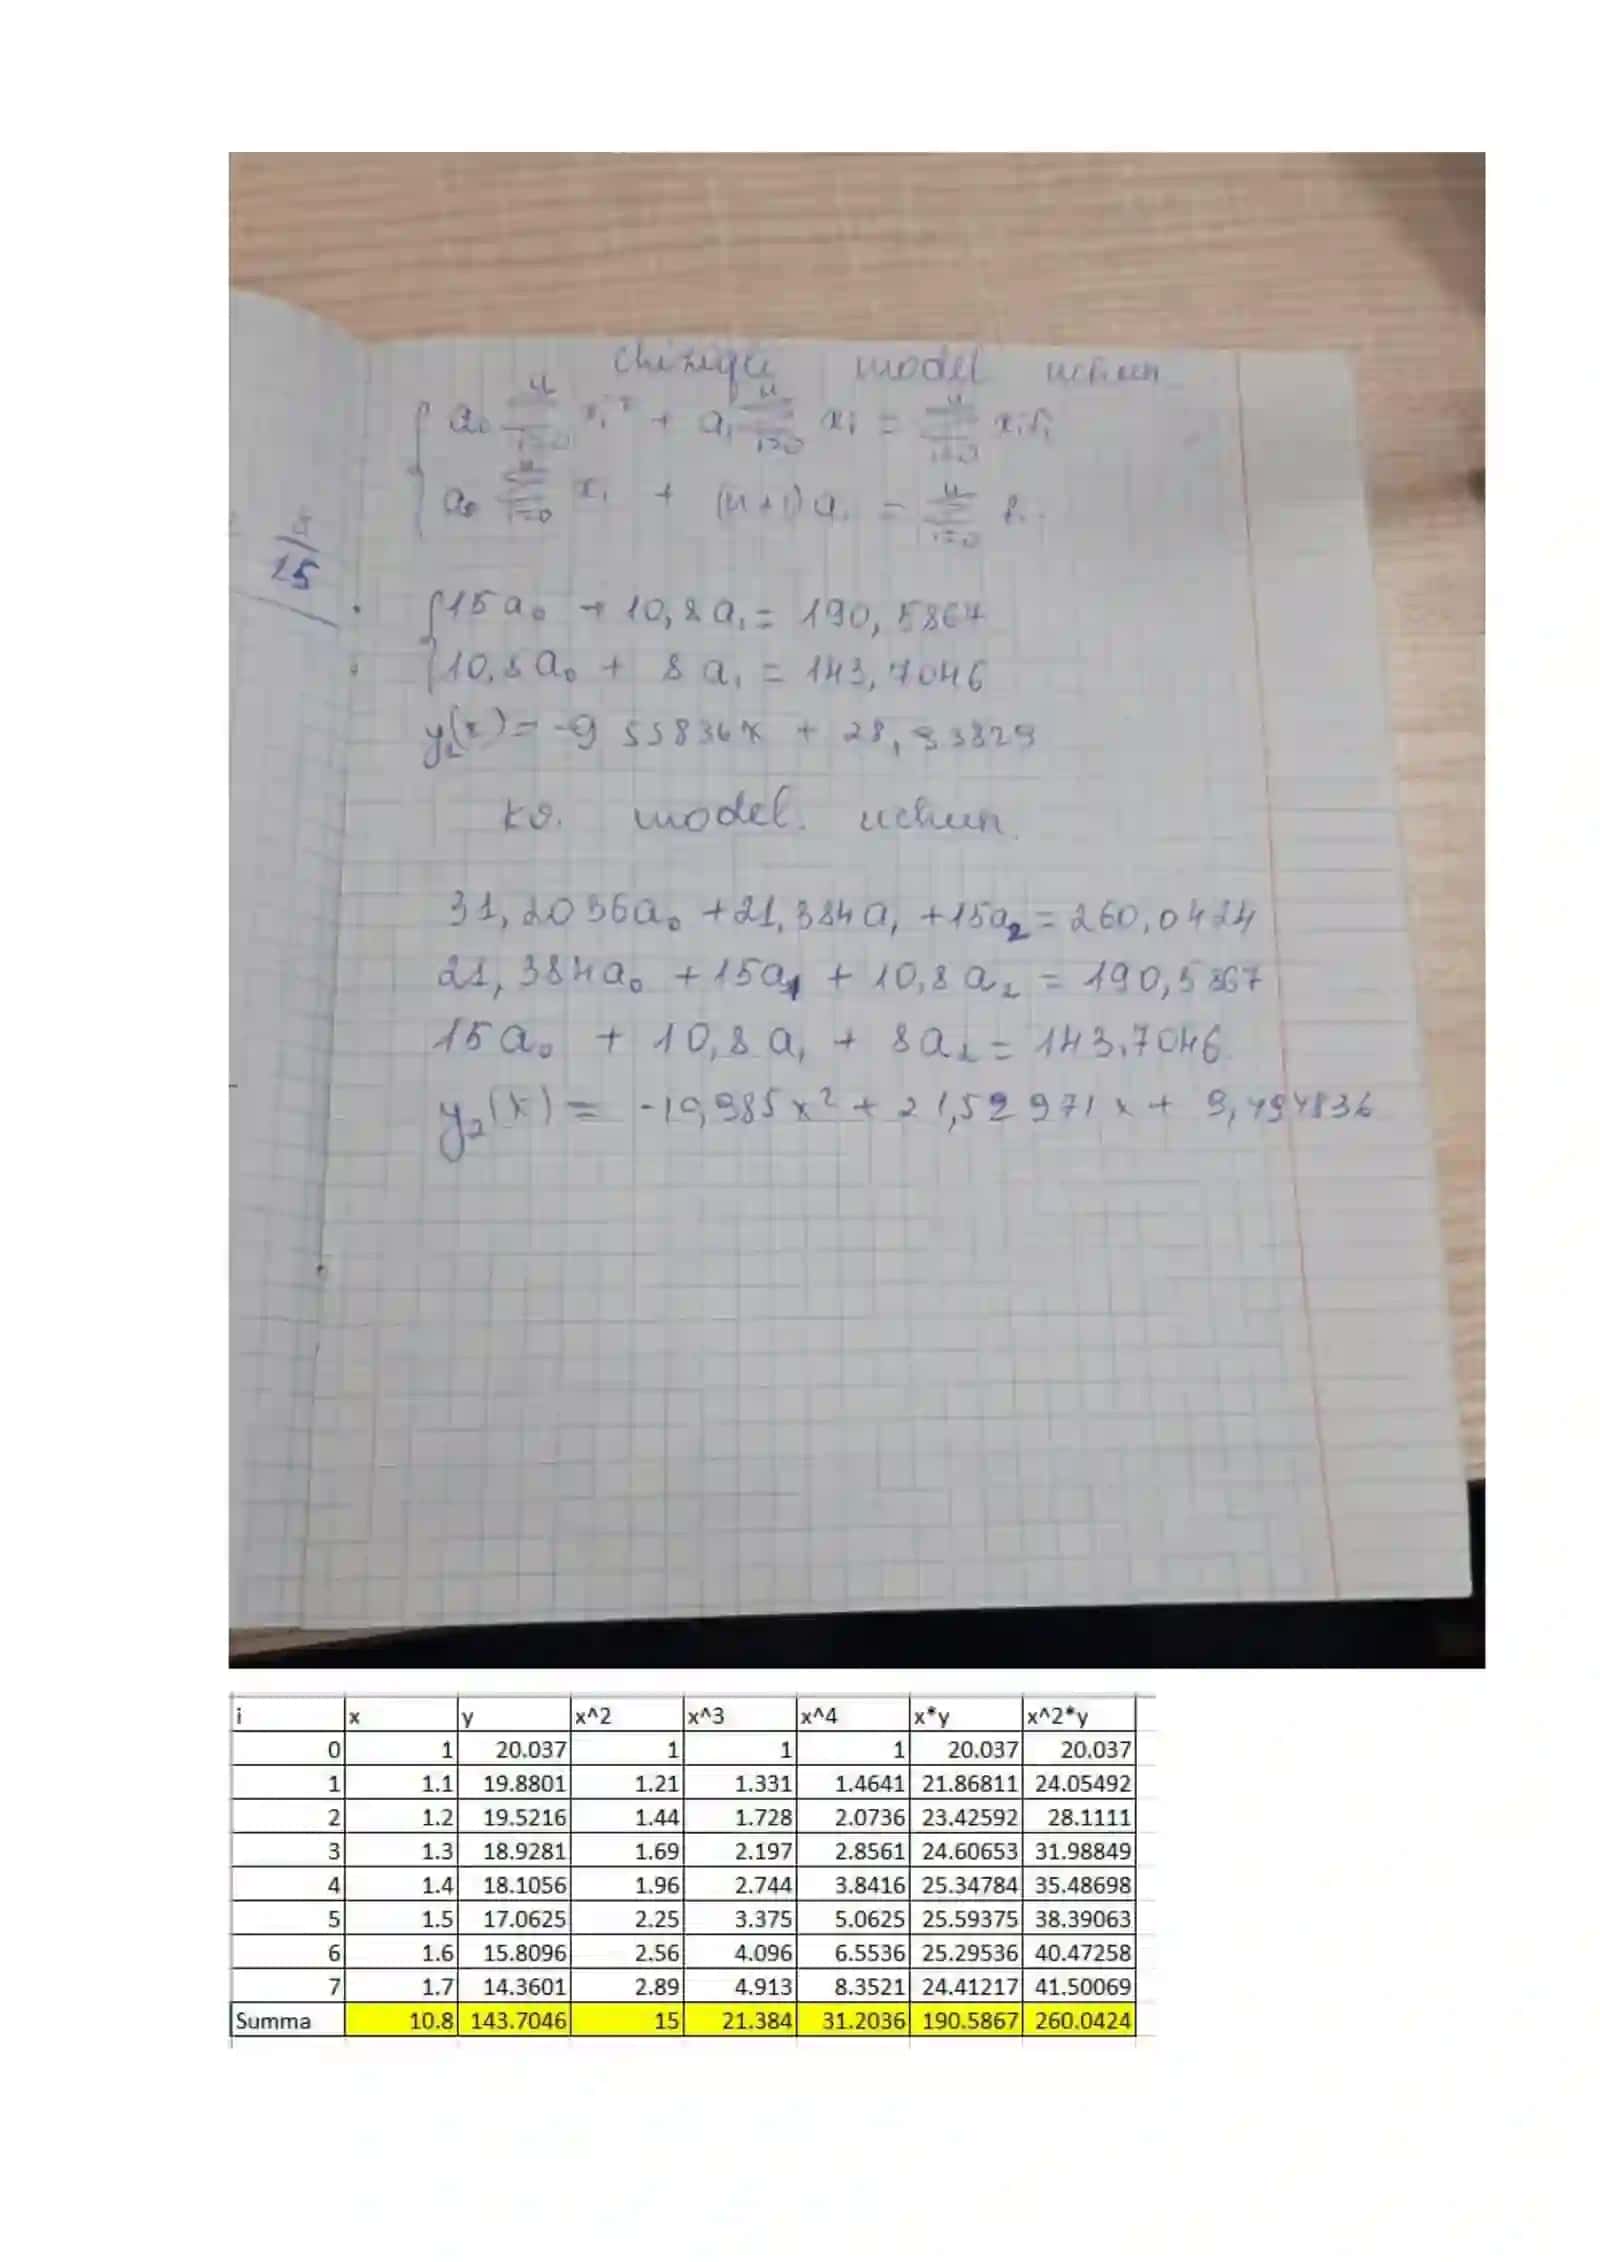 chiziqli model uchun
a₀ Σ xᵢ² + a₁ Σ xᵢ = Σ xᵢfᵢ
a₀ Σ xᵢ + (n+1)a₁ = Σ fᵢ
15
15a₀ + 10,8a₁ = 190,5867
10,8a₀ + 8a₁ = 143,7046
y₁(x) = -9 55836x + 28,93829
kv. model. uchun
31,2036a₀ + 21,384a₁ + 15a₂ = 260,0424
21,384a₀ + 15a₁ + 10,8a₂ = 190,5867
15a₀ + 10,8a₁ + 8a₂ = 143,7046
y₂(x) = x² + 21,52971x +
i x y x^2 x^3 x^4 x*y x^2*y
0 1 20.037 1 1 1 20.037 20.037
1 1.1 19.8801 1.21 1.331 1.4641 21.86811 24.05492
2 1.2 19.5216 1.44 1.728 2.0736 23.42592 28.1111
3 1.3 18.9281 1.69 2.197 2.8561 24.60653 31.98849
4 1.4 18.1056 1.96 2.744 3.8416 25.34784 35.48698
5 1.5 17.0625 2.25 3.375 5.0625 25.59375 38.39063
6 1.6 15.8096 2.56 4.096 6.5536 25.29536 40.47258
7 1.7 14.3601 2.89 4.913 8.3521 24.41217 41.50069
Summa 10.8 143.7046 15 21.384 31.2036 190.5867 260.0424